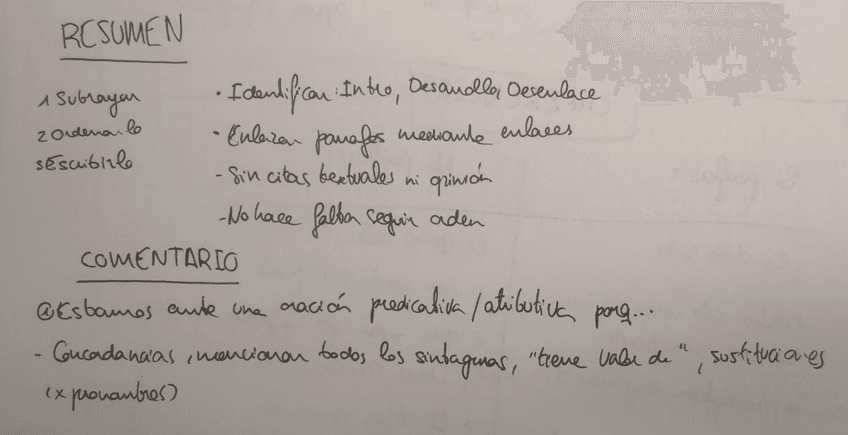 RESUMEN
1 Subrayar
2 Ordenarlo
3 Escribirlo
· Identificar: Intro, Desarrollo, Desenlace
· Enlazar párrafos mediante enlaces
- Sin citas textuales ni opinión
- No hace falta seguir orden
COMENTARIO
@Estamos ante una oración predicativa/atributiva porq...
- Concordancias, mencionar todos los sintagmas, "tiene valor de", sustituciones
(x pronombres)